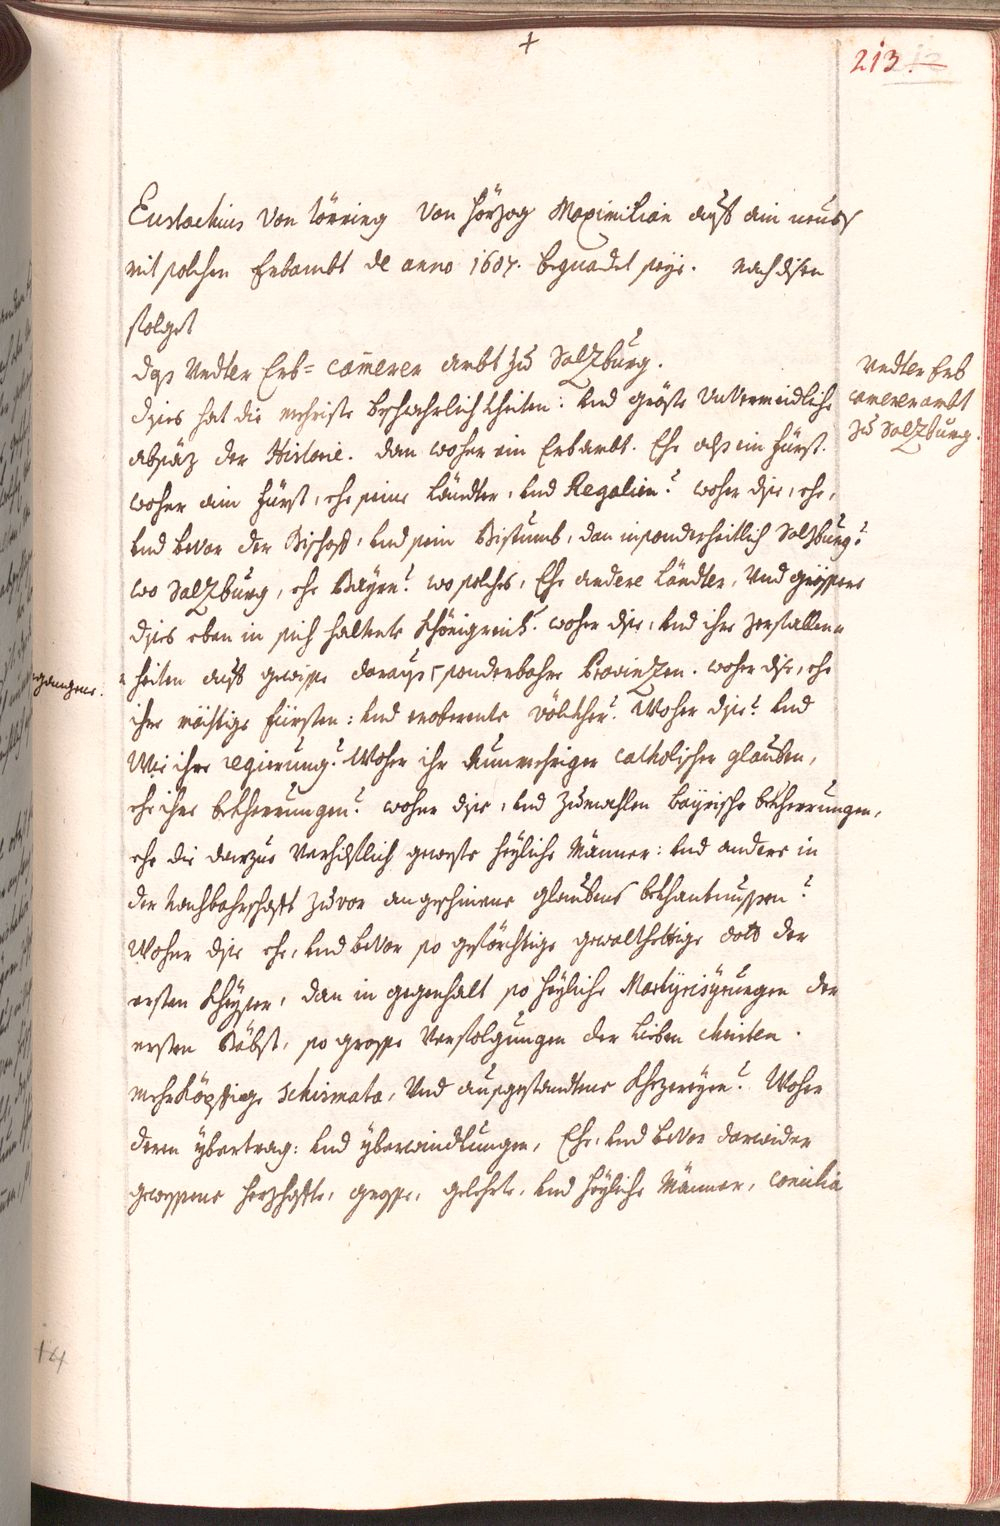 +
213.
Eustachius Von Törring Von Hörzog Maximilian auff ain neues
mit solchen Erbambt de anno 1607. begnadet seye. nach disem
folget
Das Undter Erb= camerer ambt zu Salzburg.
Undter Erb
camererambt
zu Salzburg.
dises hat die mehriste beschwehrlichkheiten: und gröste Unvermeidliche
absäz der Historie. dan woher ein Erbambt. Ehe alß ein Fürst.
woher ain Fürst, ehe seine Ländter, und Regalien? woher dise, ehe,
und bevor der Bischoff, und sein Bistumb, dan insonderheitlich Salzburg?
wo Salzburg, ehe Bayrn? wo solches, Ehe andere Ländter, Und grössere
dises eben in sich haltente Khönigreich? woher dise, und ihre zerfallen=
=heiten auff gewisse daraus sonderbahre Provinzen. woher dise, ehe
gangene.
ihre mächtige Fürsten: und eroberente völkher? Woher dise? und
Wie ihre regierung? Woher ihr Nunmehriger catholischer glauben,
ehe ihre bekherrungen? woher dise, und zumahlen bayrische bekherrungen,
ehe die darzue Verhilflich geweste heyliche Männer: und andere in
der Nachbahrschafft zuvor angeschinene glaubens bekhantnussen?
Woher dise ehe, und bevor so geförchtige gewaltthettige der
ersten Khayser, dan in gegenhalt so heyliche Martyrisyrungen der
ersten Päbst, so grosse Verfolgungen der lieben christen.
mehrköpffige schismata, Und ausgestandtene Khezereyen? Woher
deren ybertrag: und yberwindtungen, Ehe, und bevor darwider
gewessene herzhaffte, grosse, gelehrte, und heyliche Männer, concilia
14